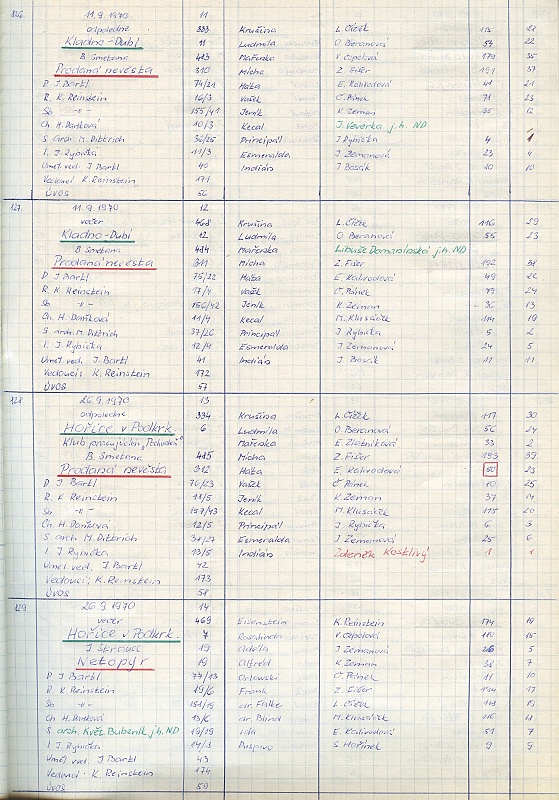 126. 11.9.1970 11
odpoledne 333 Krušina L. Čížek 115 28
Kladno-Dubí 11 Ludmila O. Beranová 54 22
B. Smetana 413 Mařenka V. Čepelová 179 35
Prodaná nevěsta 310 Mícha Z. Fišer 191 37
D J. Bartl 74/21 Háta E. Kalivodová 48 21
R. K. Reinstein 16/3 Vašek Č. Pánek 71 23
Sb -"- 155/41 Jeník K. Zeman 35 12
Ch. H. Daňková 10/3 Kecal J. Veverka j.h. ND
S arch. M. Dittrich 36/25 Principál J. Rybička 4 1
I. J. Rybička 11/3 Esmeralda J. Zemanová 23 4
Uměl. ved. J. Bartl 40 Indián J. Boscík 10 10
Vedoucí K. Reinstein 171
ÚVOS 56
127. 11.9.1970 12
večer 468 Krušina L. Čížek 116 29
Kladno-Dubí 12 Ludmila O. Beranová 55 23
B. Smetana 414 Mařenka Libuše Domanínská j.h. ND
Prodaná nevěsta 311 Mícha Z. Fišer 192 38
D J. Bartl 75/22 Háta E. Kalivodová 49 22
R. K. Reinstein 17/4 Vašek Č. Pánek 79 24
Sb -"- 156/42 Jeník K. Zeman 36 13
Ch. H. Daňková 11/4 Kecal M. Klusáček 114 19
S arch. M. Dittrich 37/26 Principál J. Rybička 5 2
I. J. Rybička 12/4 Esmeralda J. Zemanová 24 5
Uměl. ved. J. Bartl 41 Indián J. Boscík 11 11
Vedoucí: K. Reinstein 172
ÚVOS 57
128 26.9.1970 13
odpoledne 334 Krušina L. Čížek 117 30
Hořice v Podkrk. 6 Ludmila O. Beranová 56 24
Klub pracujících "Pochodeň" Mařenka E. Zlatníková 33 2
B. Smetana 415 Mícha Z. Fišer 193 39
Prodaná nevěsta 312 Háta E. Kalivodová 50 23
D J. Bartl 76/23 Vašek Č. Pánek 10 25
R. K. Reinstein 18/5 Jeník K. Zeman 37 14
Sb -"- 157/43 Kecal M. Klusáček 115 20
Ch. H. Daňková 12/5 Principál J. Rybička 6 3
S arch. M. Dittrich 38/27 Esmeralda J. Zemanová 25 6
I. J. Rybička 13/5 Indián Zdeněk Kosklivý 1 1
Uměl. ved. J. Bartl 42
Vedoucí: K. Reinstein 173
ÚVOS 58
129 26.9.1970 14
večer 469 Eisenstein K. Reinstein 174 19
Hořice v Podkrk. 7 Rosalinda V. Čepelová 110 15
J. Strauss 19 Adéla J. Zemanová 26 5
Netopýr 19 Alfréd K. Zeman 38 7
D J. Bartl 77/13 Orlowski Č. Pánek 11 10
R. K. Reinstein 19/6 Frank Z. Fišer 194 17
Sb -"- 151/19 dr. Falke L. Čížek 118 19
Ch H. Daňková 13/6 dr. Blind M. Klusáček 116 11
S arch. Květ. Bubeník j.h. ND 19/19 Ida E. Kalivodová 51 7
I. J. Rybička 14/3 Puspivo S. Hořínek 9 9
Uměl. ved. J. Bartl 43
Vedoucí: K. Reinstein 174
ÚVOS 59